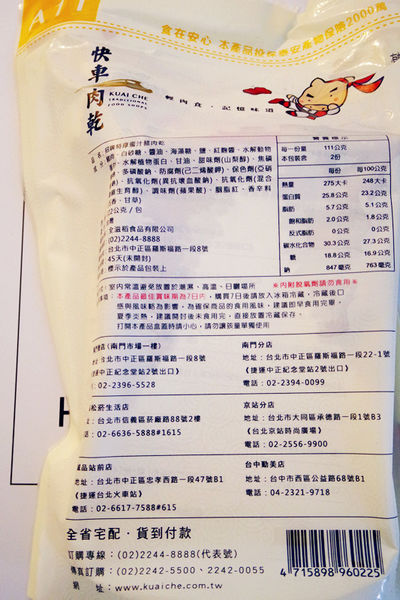 A11
食在安心 本產品投保泰安產物保險2000萬
快車肉乾
KUAI CHE
TRADITIONAL
FOOD SHOPS
輕肉食・記憶味道
品名:招牌特厚蜜汁豬肉乾
豬肉、白砂糖、醬油、海藻糖、鹽、紅麴醬、水解動物
水解植物蛋白、甘油、甜味劑(山梨醇)、焦磷
多磷酸鈉、防腐劑(己二烯酸鉀)、保色劑(亞硝
、抗氧化劑(異抗壞血酸鈉)、抗氧化劑(混合
生育醇)、調味劑(蘋果酸)、胭脂紅、香辛料
、甘草)
2公克/包
台灣
全滋裕食品有限公司
(02)2244-8888
台北市中正區羅斯福路一段8號
45天(未開封)
標示於產品包裝上
營養標示
每一份量 111公克
本包裝含 2份
每份 每100公克
熱量 275大卡 248大卡
蛋白質 25.8公克 23.2公克
脂肪 5.7公克 5.1公克
飽和脂肪 2.0公克 1.8公克
反式脂肪 0公克 0公克
碳水化合物 30.3公克 27.3公克
糖 18.8公克 16.9公克
鈉 847毫克 763毫克
室內常溫避免放置於潮濕、高溫、日曬場所
※內附脫氧劑請勿食用※
事項:本產品最佳賞味期為7日內,購買7日後請放入冰箱冷藏,冷藏後口
感與風味略為影響,為確保商品的食用風味,建議即早食用完畢,
夏季炎熱,建議開封後未食用完,直接放置冷藏保存。
打開本產品盒蓋時請小心,請勿讓孩童單獨使用
(南門市場一樓)
台北市中正區羅斯福路一段8號
(捷運中正紀念堂站2號出口)
02-2396-5528
南門分店
地址:台北市中正區羅斯福路一段22-1號
(捷運中正紀念堂站2號出口)
電話:02-2394-0099
松菸生活店
台北市信義區菸廠路88號2樓
02-6636-5888#1615
京站分店
地址:台北市大同區承德路一段1號B3
(台北京站時尚廣場)
電話:02-2556-9900
誠品站前店
地址:台北市中正區忠孝西路一段47號B1
(捷運台北火車站)
電話:02-6617-7588#615
台中勤美店
地址:台中市西區公益路68號B1
電話:04-2321-9718
全省宅配・貨到付款
訂購專線:(02)2244-8888(代表號)
傳真訂購:(02)2242-5500、2242-0055
網 址:www.kuaiche.com.tw
4 715898 960225